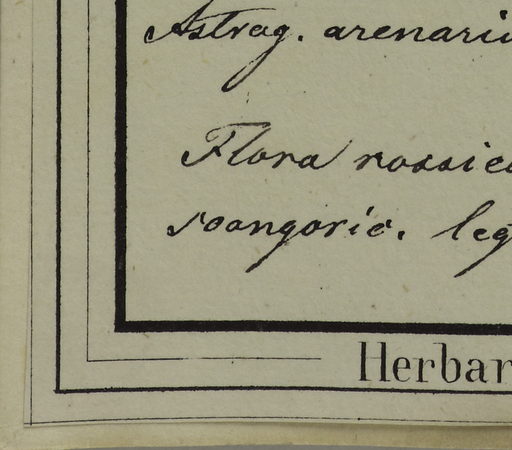 Astrag. arenariu
Flora rossica
soongoric. leg
Herbar